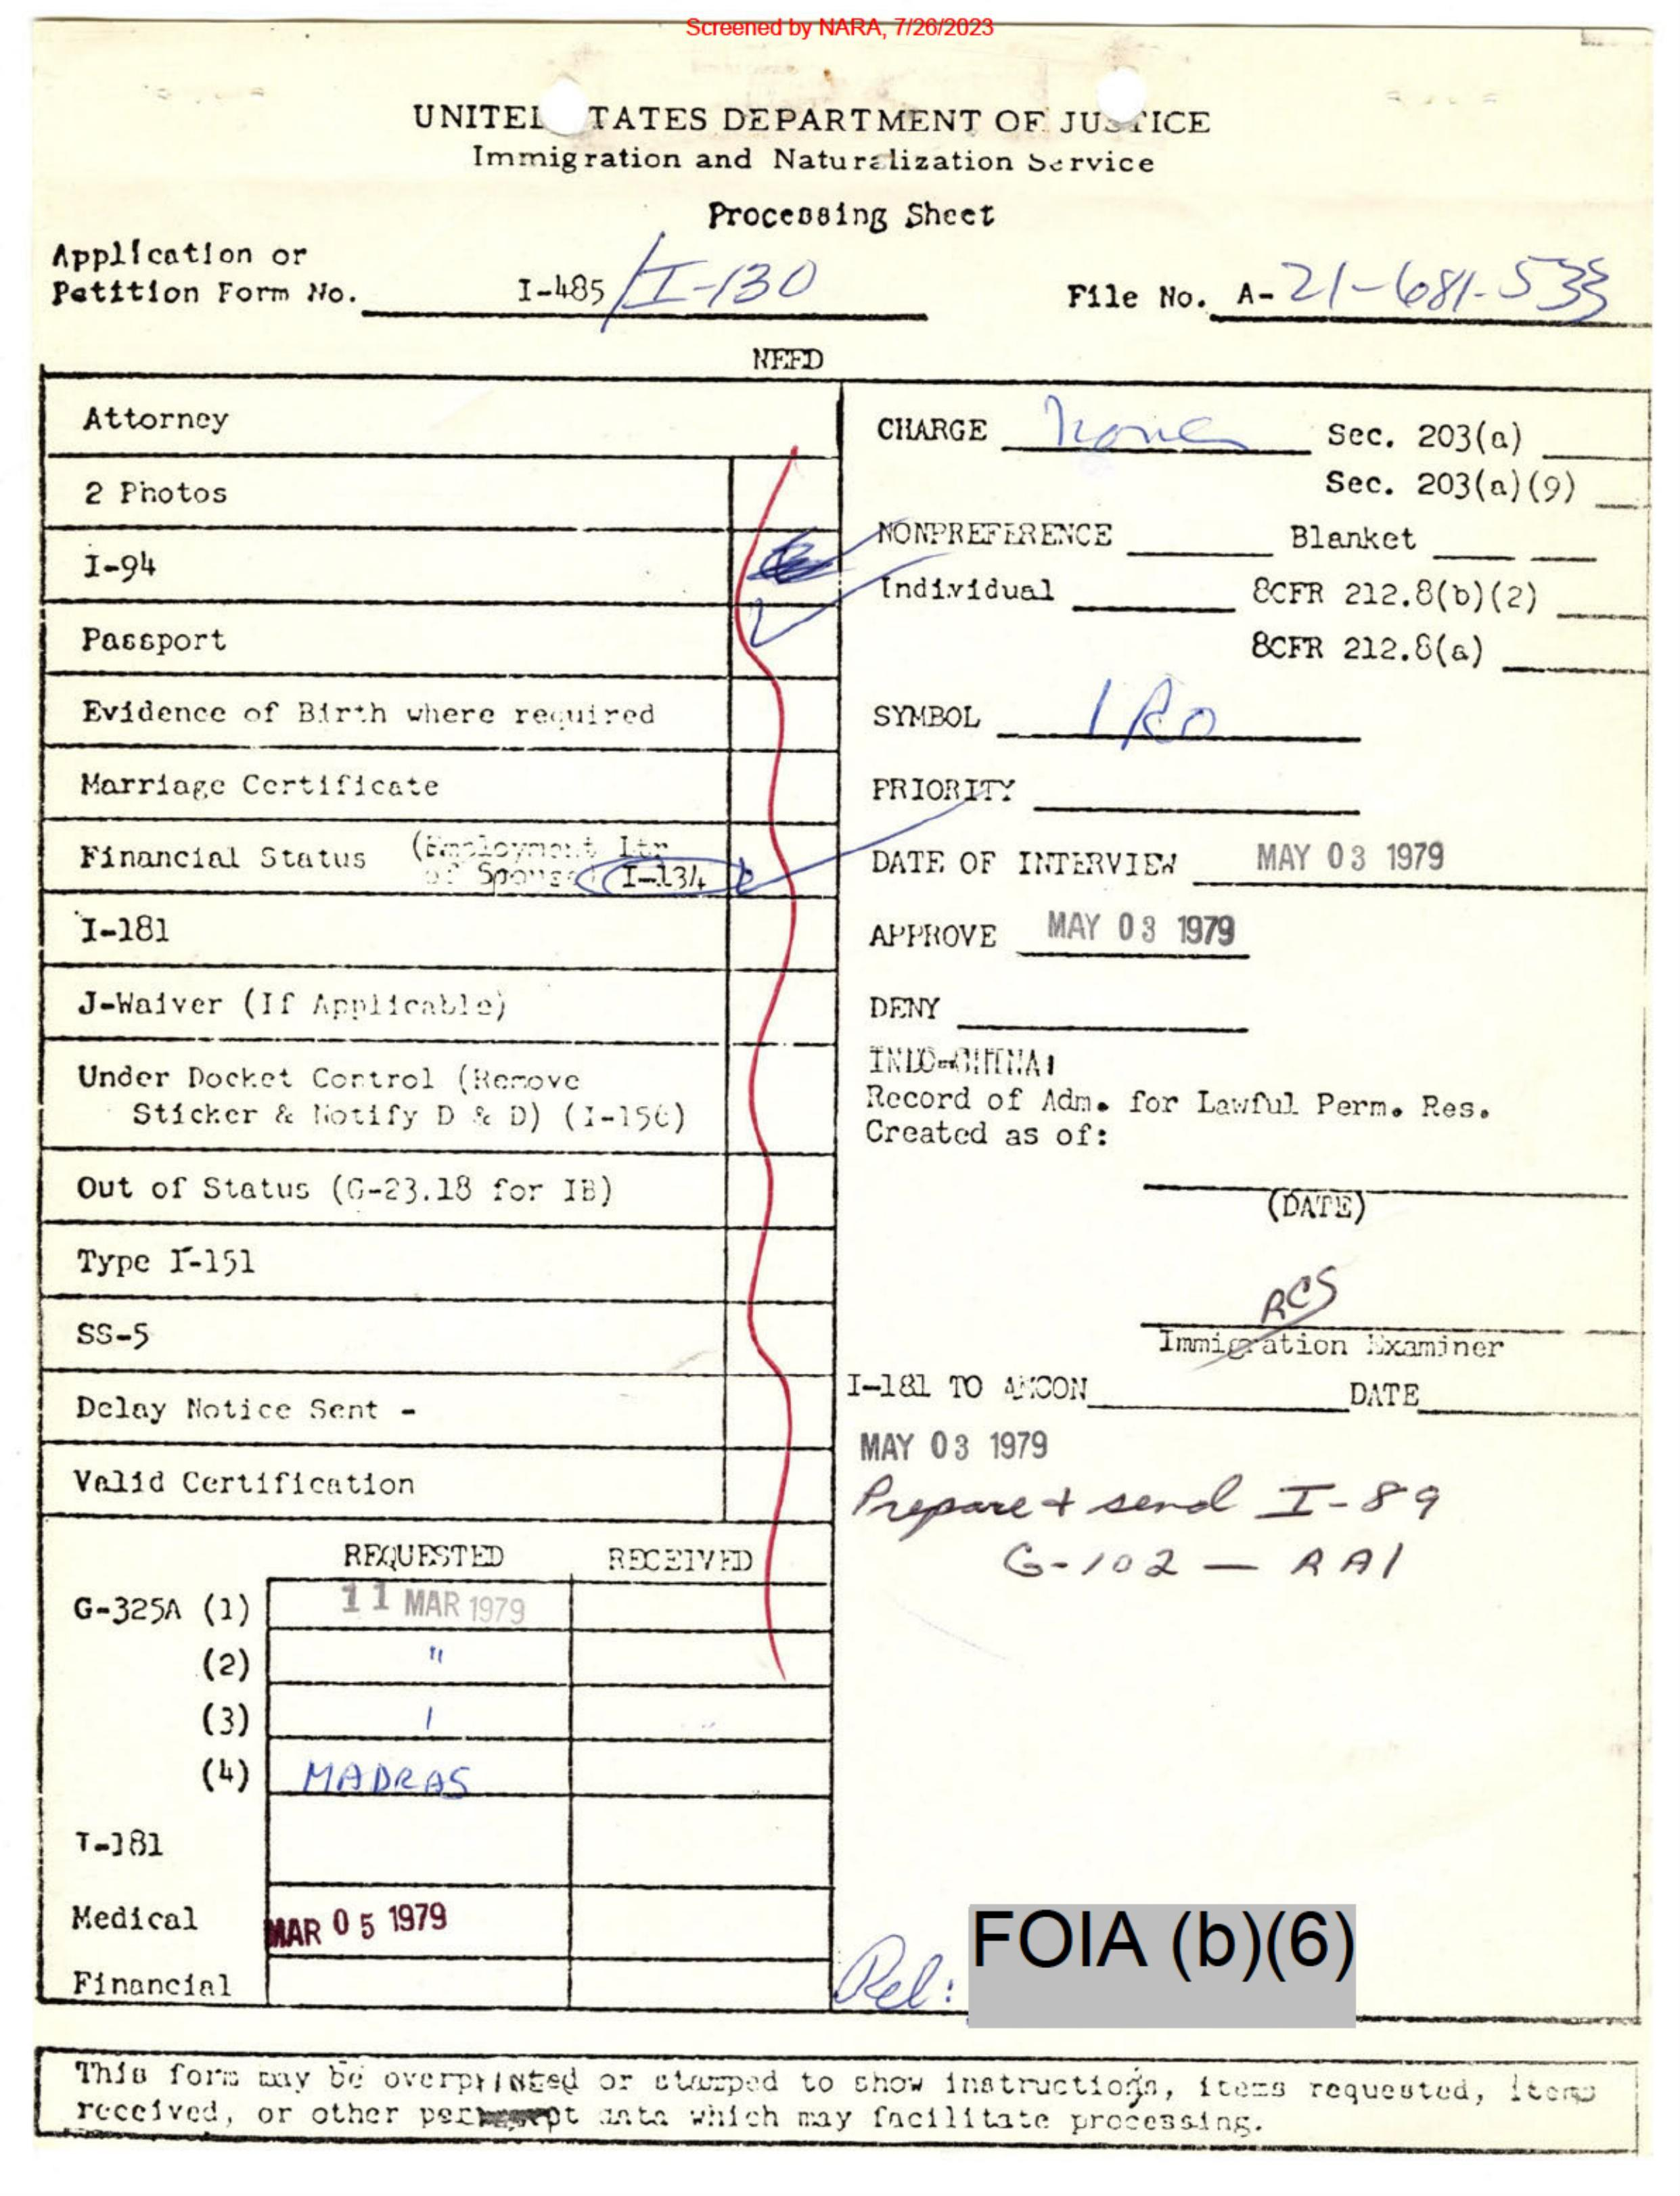 Screened by NARA, 7/26/2023
UNITE TATES DEPARTMENT OF JUSTICE
Immigration and Naturalization Service
Processing Sheet
Application or
Petition Form No. I-485/I-130
File No. A-21-681-533
NEED
Attorney
2 Photos
I-94
Passport
Evidence of Birth where required
Marriage Certificate
Financial Status (Employment Ltr
of Spouse) I-134
I-181
J-Waiver (If Applicable)
Under Docket Control (Remove
Sticker & Notify D & D) (I-156)
Out of Status (G-23.18 for IB)
Type I-151
SS-5
Delay Notice Sent -
Valid Certification
REQUESTED RECEIVED
G-325A (1) 11 MAR 1979
(2) "
(3)
(4) MADRAS
I-181
Medical MAR 05 1979
Financial
CHARGE none Sec. 203(a)
Sec. 203(a)(9)
NONPREFERENCE Blanket
Individual 8CFR 212.8(b)(2)
8CFR 212.8(a)
SYMBOL IR0
PRIORITY
DATE OF INTERVIEW MAY 03 1979
APPROVE MAY 03 1979
DENY
INDO-CHINA:
Record of Adm. for Lawful Perm. Res.
Created as of:
(DATE)
RCS
Immigration Examiner
I-181 TO AMCON DATE
MAY 03 1979
Prepare + send I-89
G-102 — RA1
Rel: FOIA (b)(6)
This form may be overprinted or stamped to show instructions, items requested, items
received, or other data which may facilitate processing.